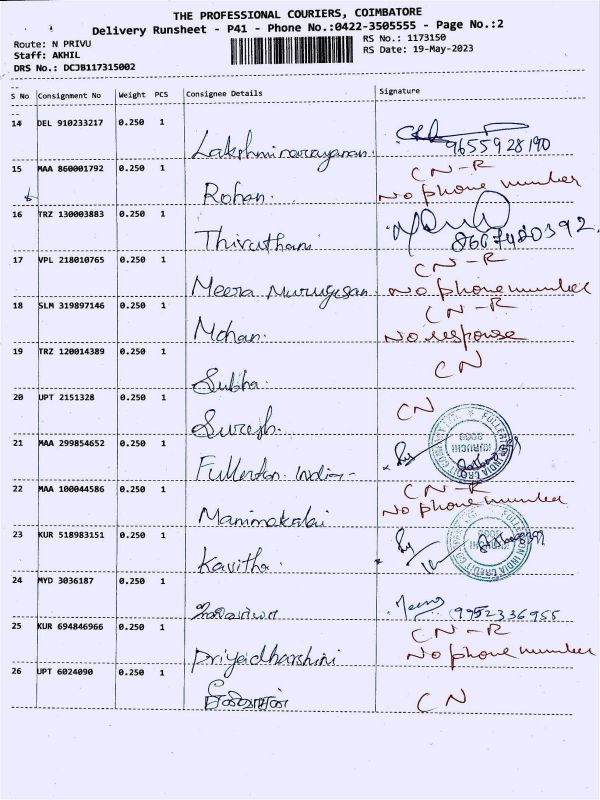 THE PROFESSIONAL COURIERS, COIMBATORE
Delivery Runsheet - P41 - Phone No.:0422-3505555 - Page No.:2
Route: N PRIVU
RS No.: 1173150
Staff: AKHIL
RS Date: 19-May-2023
DRS No.: DCJB117315002
S No Consignment No Weight PCS Consignee Details Signature
14 DEL 910233217 0.250 1
Lakshminarayanan. 9655928190
15 MAA 860001792 0.250 1 CN-R
Rohan. No phone number
16 TRZ 130003883 0.250 1
Thiruthani 8667480392
17 VPL 218010765 0.250 1 CN-R
Meera Murugesan No phone number
18 SLM 319897146 0.250 1 CN-R
Mohan. No response
19 TRZ 120014389 0.250 1 CN
Subha.
20 UPT 2151328 0.250 1 CN
Suresh.
21 MAA 299854652 0.250 1
Fullerton India
22 MAA 100044586 0.250 1 CN-R
No phone number
23 KUR 518983151 0.250 1
Kavitha.
24 MYD 3036187 0.250 1
9952336955
25 KUR 694846966 0.250 1 CN-R
Priyadharshini No phone number
26 UPT 6024090 0.250 1
CN